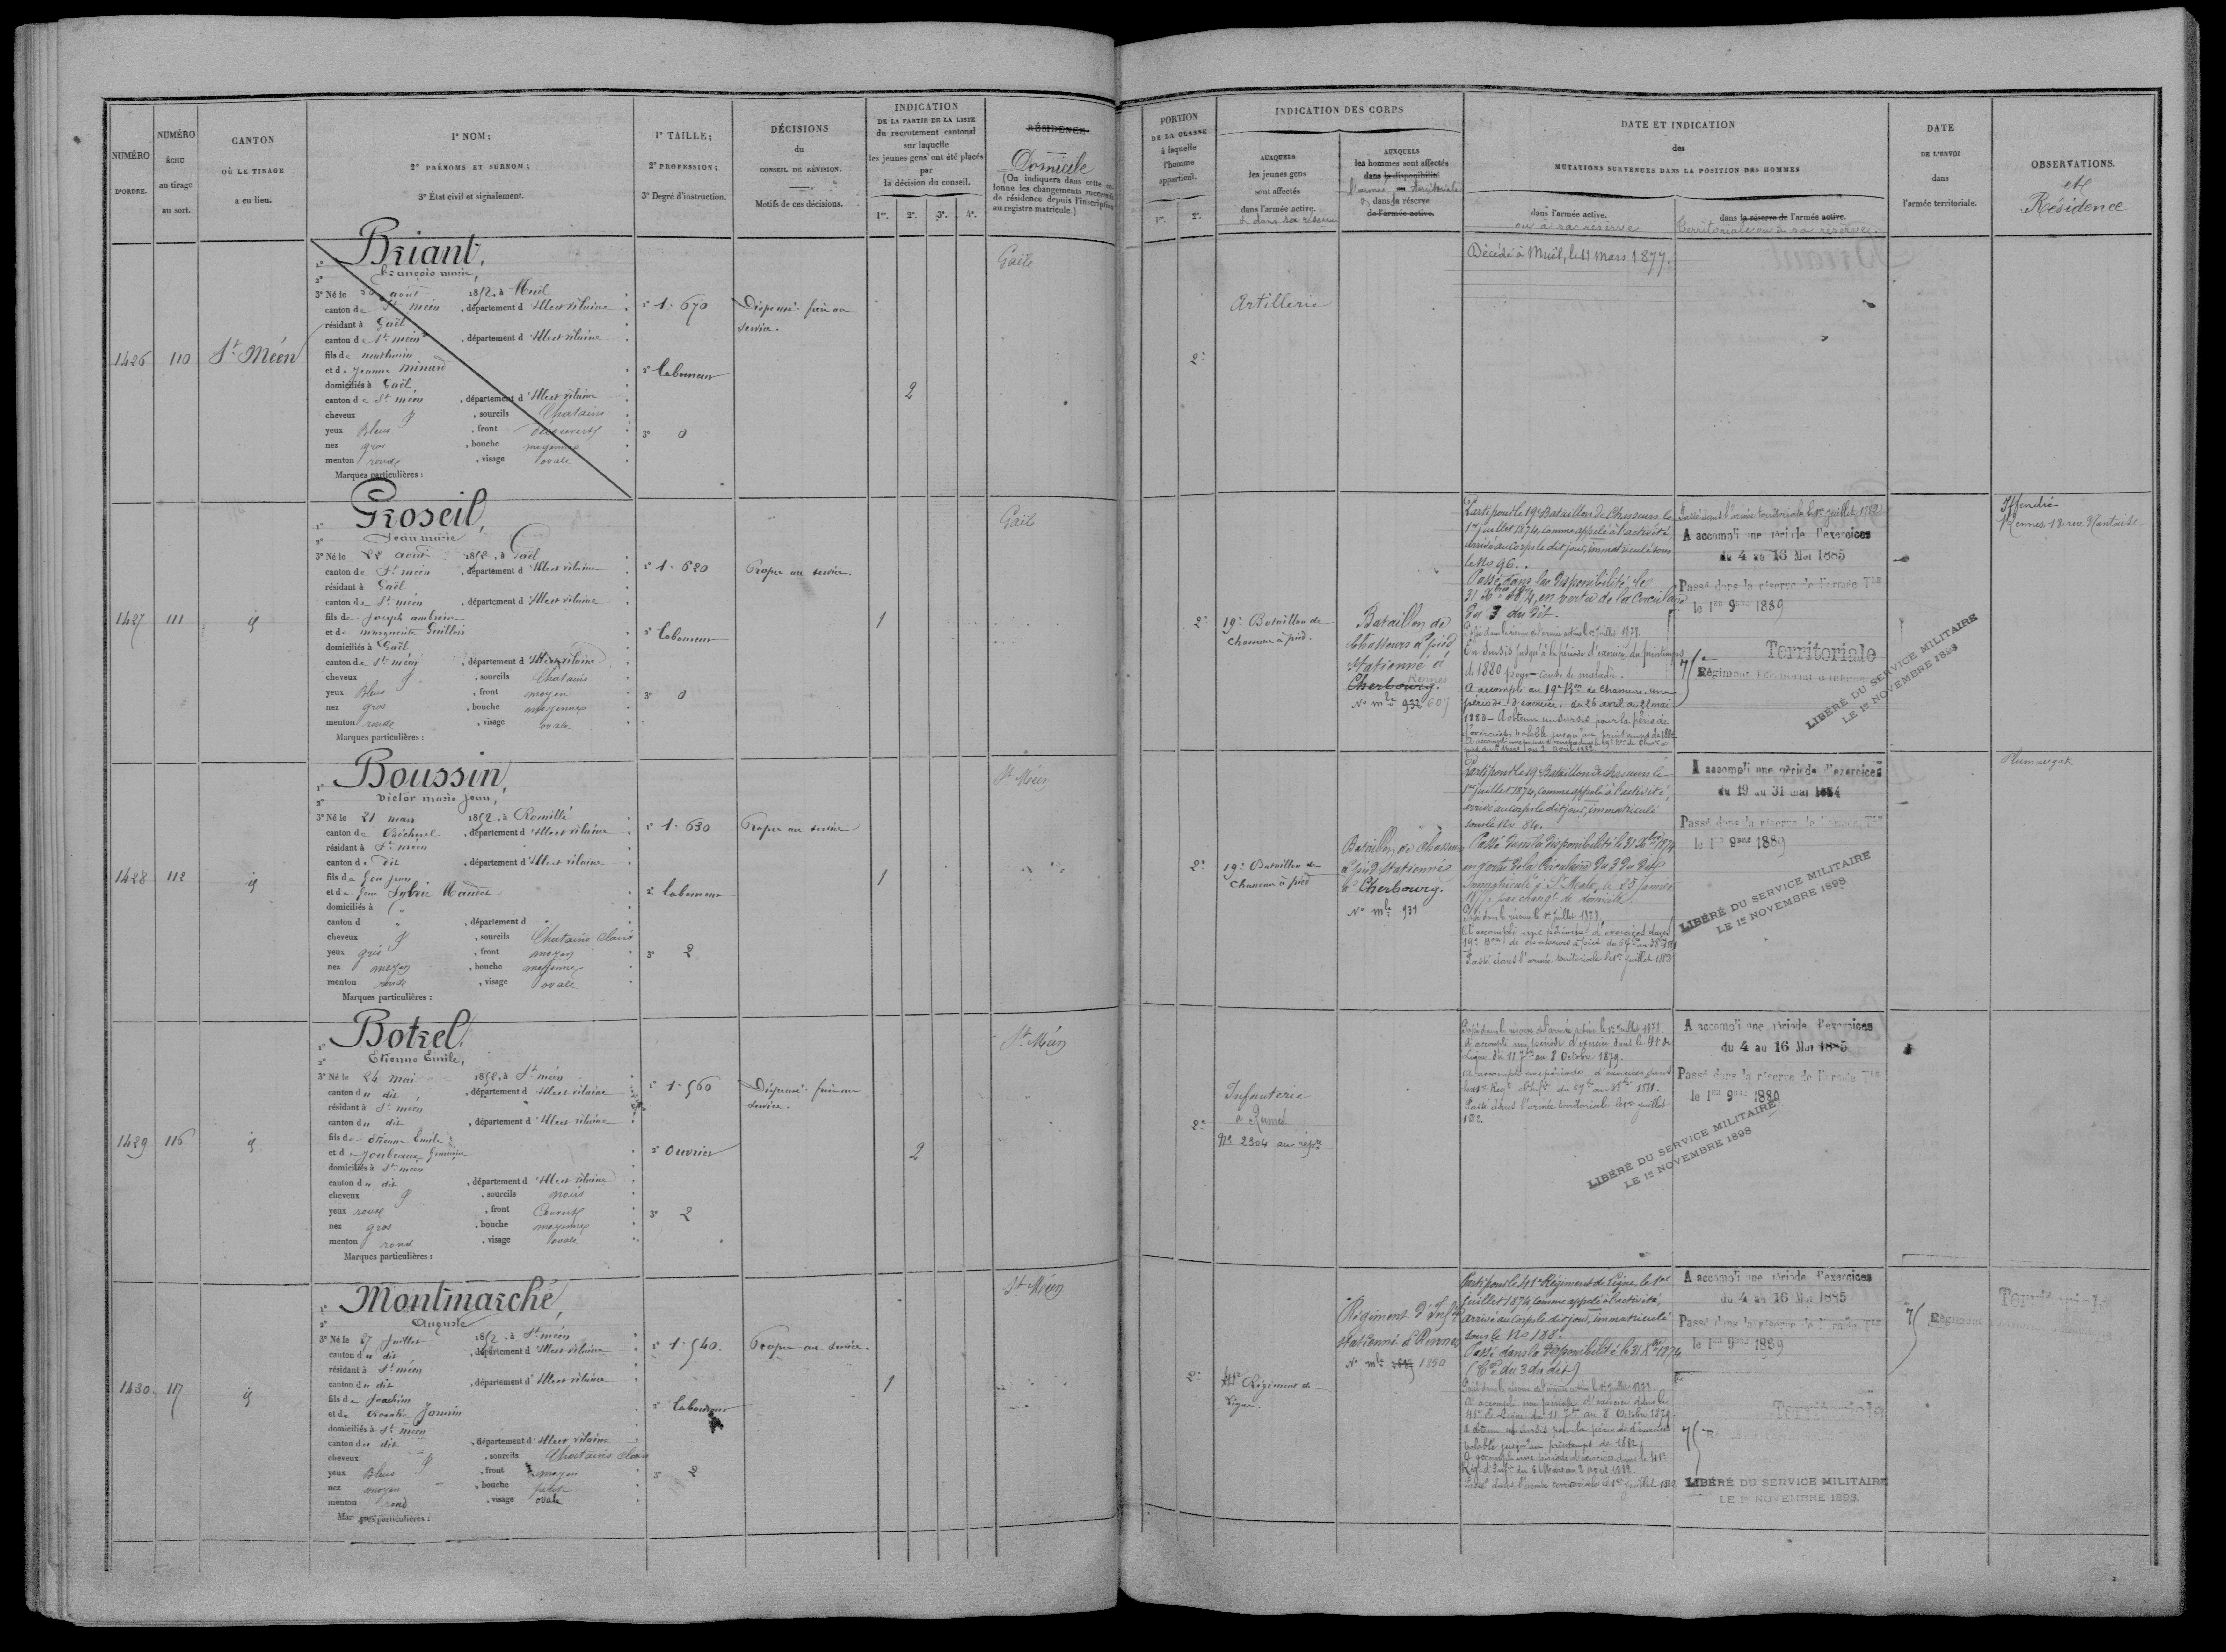 NUMÉRO D'ORDRE.
NUMÉRO ÉCHU au tirage au sort.
CANTON OÙ LE TIRAGE a eu lieu.
1° NOM;
2° PRÉNOMS ET SURNOM;
3° État civil et signalement.
1° TAILLE;
2° PROFESSION;
3° Degré d'instruction.
DÉCISIONS
du
CONSEIL DE RÉVISION.
Motifs de ces décisions.
INDICATION
DE LA PARTIE DE LA LISTE
du recrutement cantonal
sur laquelle
les jeunes gens ont été placés
par
la décision du conseil.
1re. 2e. 3e. 4e.
RÉSIDENCE
Domicile
(On indiquera dans cette colonne les changements successifs
de résidence depuis l'inscription
au registre matricule.)
PORTION
DE LA CLASSE
à laquelle
l'homme
appartient.
1re. 2e.
INDICATION DES CORPS
AUXQUELS
les jeunes gens
sont affectés
dans l'armée active.
et dans sa réserve
AUXQUELS
les hommes sont affectés
dans la disponibilité
l'armée Territoriale
dans la réserve
de l'armée active.
DATE ET INDICATION
des
MUTATIONS SURVENUES DANS LA POSITION DES HOMMES
dans l'armée active.
ou à sa réserve
dans la réserve de l'armée active.
Territoriale ou à sa réserve.
DATE
DE L'ENVOI
dans
l'armée territoriale.
OBSERVATIONS.
et
Résidence
1426 110 St. Méen
1° Briant,
2° François marie,
3° Né le 30 août 1852, à Muël
canton de St. méen, département d'Ille et vilaine
résidant à Gaël
canton de St. méen, département d'Ille et vilaine
fils de mathurin
et de jeanne Minard
domiciliés à Gaël
canton de St. méen, département d'Ille et vilaine
cheveux, sourcils Chatains
yeux Bleus, front découvert
nez gros, bouche moyenne
menton rond, visage ovale
Marques particulières :
1° 1. 670
2° Laboureur
3° 0
Dispensé. frère au
service.
2
Gaël
2e
Artillerie
Décédé à Muël, le 11 mars 1877.
1427 111 id
1° Groseil,
2° Jean marie
3° Né le 22 août 1852, à Gaël
canton de St. méen, département d'Ille et vilaine
résidant à Gaël
canton de St. méen, département d'Ille et vilaine
fils de joseph ambroise
et de marguerite Guillois
domiciliés à Gaël
canton de St. méen, département d'Ille et vilaine
cheveux, sourcils Chatains
yeux Bleus, front moyen
nez gros, bouche moyenne
menton rond, visage ovale
Marques particulières :
1° 1. 620
2° Laboureur
3° 0
Propre au service.
1
Gaël
2e
19e Bataillon de
Chasseurs à pied.
Bataillon de
Chasseurs à pied
stationné à
Cherbourg. Rennes
No mle 932 607
Parti pour le 19e Bataillon de Chasseurs le
1er juillet 1874, comme appelé à l'activité,
arrivé au corps le dit jour, immatriculé sous
le No 96.
Passé dans la Disponibilité le
31 Xbre 1874, en vertu de la Circulaire
du 3 du dit.
Passé dans la réserve de l'armée active le 1er juillet 1878.
En sursis jusqu'à la période d'exercice du printemps
de 1880 pour cause de maladie.
A accompli au 19e Bon de Chasseurs une
période d'exercice du 26 avril au 22 mai
1880 - A obtenu un sursis pour la période
d'exercices valable jusqu'au printemps de 1882
Passé dans l'armée territoriale le 1er juillet 1882
A accompli une période d'exercices
du 4 au 16 Mai 1885
Passé dans la réserve de l'armée Tle
le 1er 9bre 1889
Territoriale
Régiment Territorial d'Infanterie
LIBÉRÉ DU SERVICE MILITAIRE
LE 1er NOVEMBRE 1898
Iffendic
Rennes 18 rue Nantaise
1428 112 id
1° Boussin,
2° Victor marie Jean,
3° Né le 21 mars 1852, à Romillé
canton de Bécherel, département d'Ille et vilaine
résidant à St. méen
canton de dit, département d'Ille et vilaine
fils de feu jean
et de feue Sylvie Maudet
domiciliés à
canton d, département d
cheveux, sourcils Chatains clairs
yeux gris, front moyen
nez moyen, bouche moyenne
menton rond, visage ovale
Marques particulières :
1° 1. 630
2° Laboureur
3° 2
Propre au service
1
St. Méen
2e
19e Bataillon de
Chasseurs à pied
Bataillon de chasseurs
à pied stationné
à Cherbourg.
No mle 931
Parti pour le 19e Bataillon de Chasseurs le
1er juillet 1874, comme appelé à l'activité,
arrivé au corps le dit jour, immatriculé
sous le No 84.
Passé dans la Disponibilité le 31 Xbre 1874
en vertu de la Circulaire du 3 du dit
Immatriculé à St. Malo, le 25 Janvier
1877, par changt de domicile.
Passé dans la réserve le 1er juillet 1878.
A accompli une période d'exercices dans le
19e Bon de chasseurs à pied
Passé dans l'armée territoriale le 1er juillet 1882
A accompli une période d'exercices
du 19 au 31 mai 1884
Passé dans la réserve de l'armée Tle
le 1er 9bre 1889
LIBÉRÉ DU SERVICE MILITAIRE
LE 1er NOVEMBRE 1898
Plumaugat
1429 116 id
1° Botrel,
2° Etienne Emile,
3° Né le 24 mai 1852, à St. méen
canton du dit, département d'Ille et vilaine
résidant à St. méen
canton du dit, département d'Ille et vilaine
fils de étienne Emile
et de Joubeaux
domiciliés à St. méen
canton du dit, département d'Ille et vilaine
cheveux, sourcils noirs
yeux roux, front Couvert
nez gros, bouche moyenne
menton rond, visage ovale
Marques particulières :
1° 1. 560
2° Ouvrier
3° 2
Dispensé. frère au
service.
2
St. Méen
2e
Infanterie
à Rennes
No 2304 au répre
Passé dans la réserve de l'armée active le 1er juillet 1878.
A accompli une période d'exercice dans le 41e de
Ligne du 11 7bre au 8 Octobre 1879.
A accompli une période d'exercices dans
Passé dans l'armée territoriale le 1er juillet
1882.
A accompli une période d'exercices
du 4 au 16 Mai 1885
Passé dans la réserve de l'armée Tle
le 1er 9bre 1889
LIBÉRÉ DU SERVICE MILITAIRE
LE 1er NOVEMBRE 1898
1430 117 id
1° Montmarché,
2° Auguste
3° Né le 27 Juillet 1852, à St. méen
canton du dit, département d'Ille et vilaine
résidant à St. méen
canton du dit, département d'Ille et vilaine
fils de Joachim
et de Rosalie Jamin
domiciliés à St. méen
canton du dit, département d'Ille et vilaine
cheveux, sourcils Chatains clairs
yeux Bleus, front moyen
nez moyen, bouche petite
menton rond, visage ovale
Marques particulières :
1° 1. 540.
2° Laboureur
3° 2
Propre au service.
1
St. Méen
2e
41e Régiment de
Ligne.
Régiment d'Infie
stationné à Rennes
No mle 1850
Parti pour le 41e Régiment de Ligne, le 1er
juillet 1874, comme appelé à l'activité,
arrivé au corps le dit jour, immatriculé
sous le No 188.
Passé dans la Disponibilité le 31 Xbre 1874
(Cre du 3 du dit)
Passé dans la réserve de l'armée active le 1er juillet 1878.
A accompli une période d'exercice dans le
41e de Ligne du 11 7bre au 8 Octobre 1879.
A obtenu un sursis pour la période d'exercices
valable jusqu'au printemps de 1882
A accompli une période d'exercices dans le 41e
Régt d'Infie du 6 Mars au 2 avril 1882.
Passé dans l'armée territoriale le 1er juillet 1882
A accompli une période d'exercices
du 4 au 16 Mai 1885
Passé dans la réserve de l'armée Tle
le 1er 9bre 1889
Territoriale
LIBÉRÉ DU SERVICE MILITAIRE
LE 1er NOVEMBRE 1898.
Territoriale
Régiment